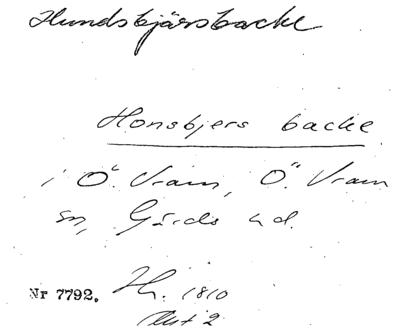 Hundsbjärsbacke
Honsbjers backe
i Ö. Vram, Ö. Vram
sn, Gärds hd.
Nr 7792. Hr. 1810
Akt 2